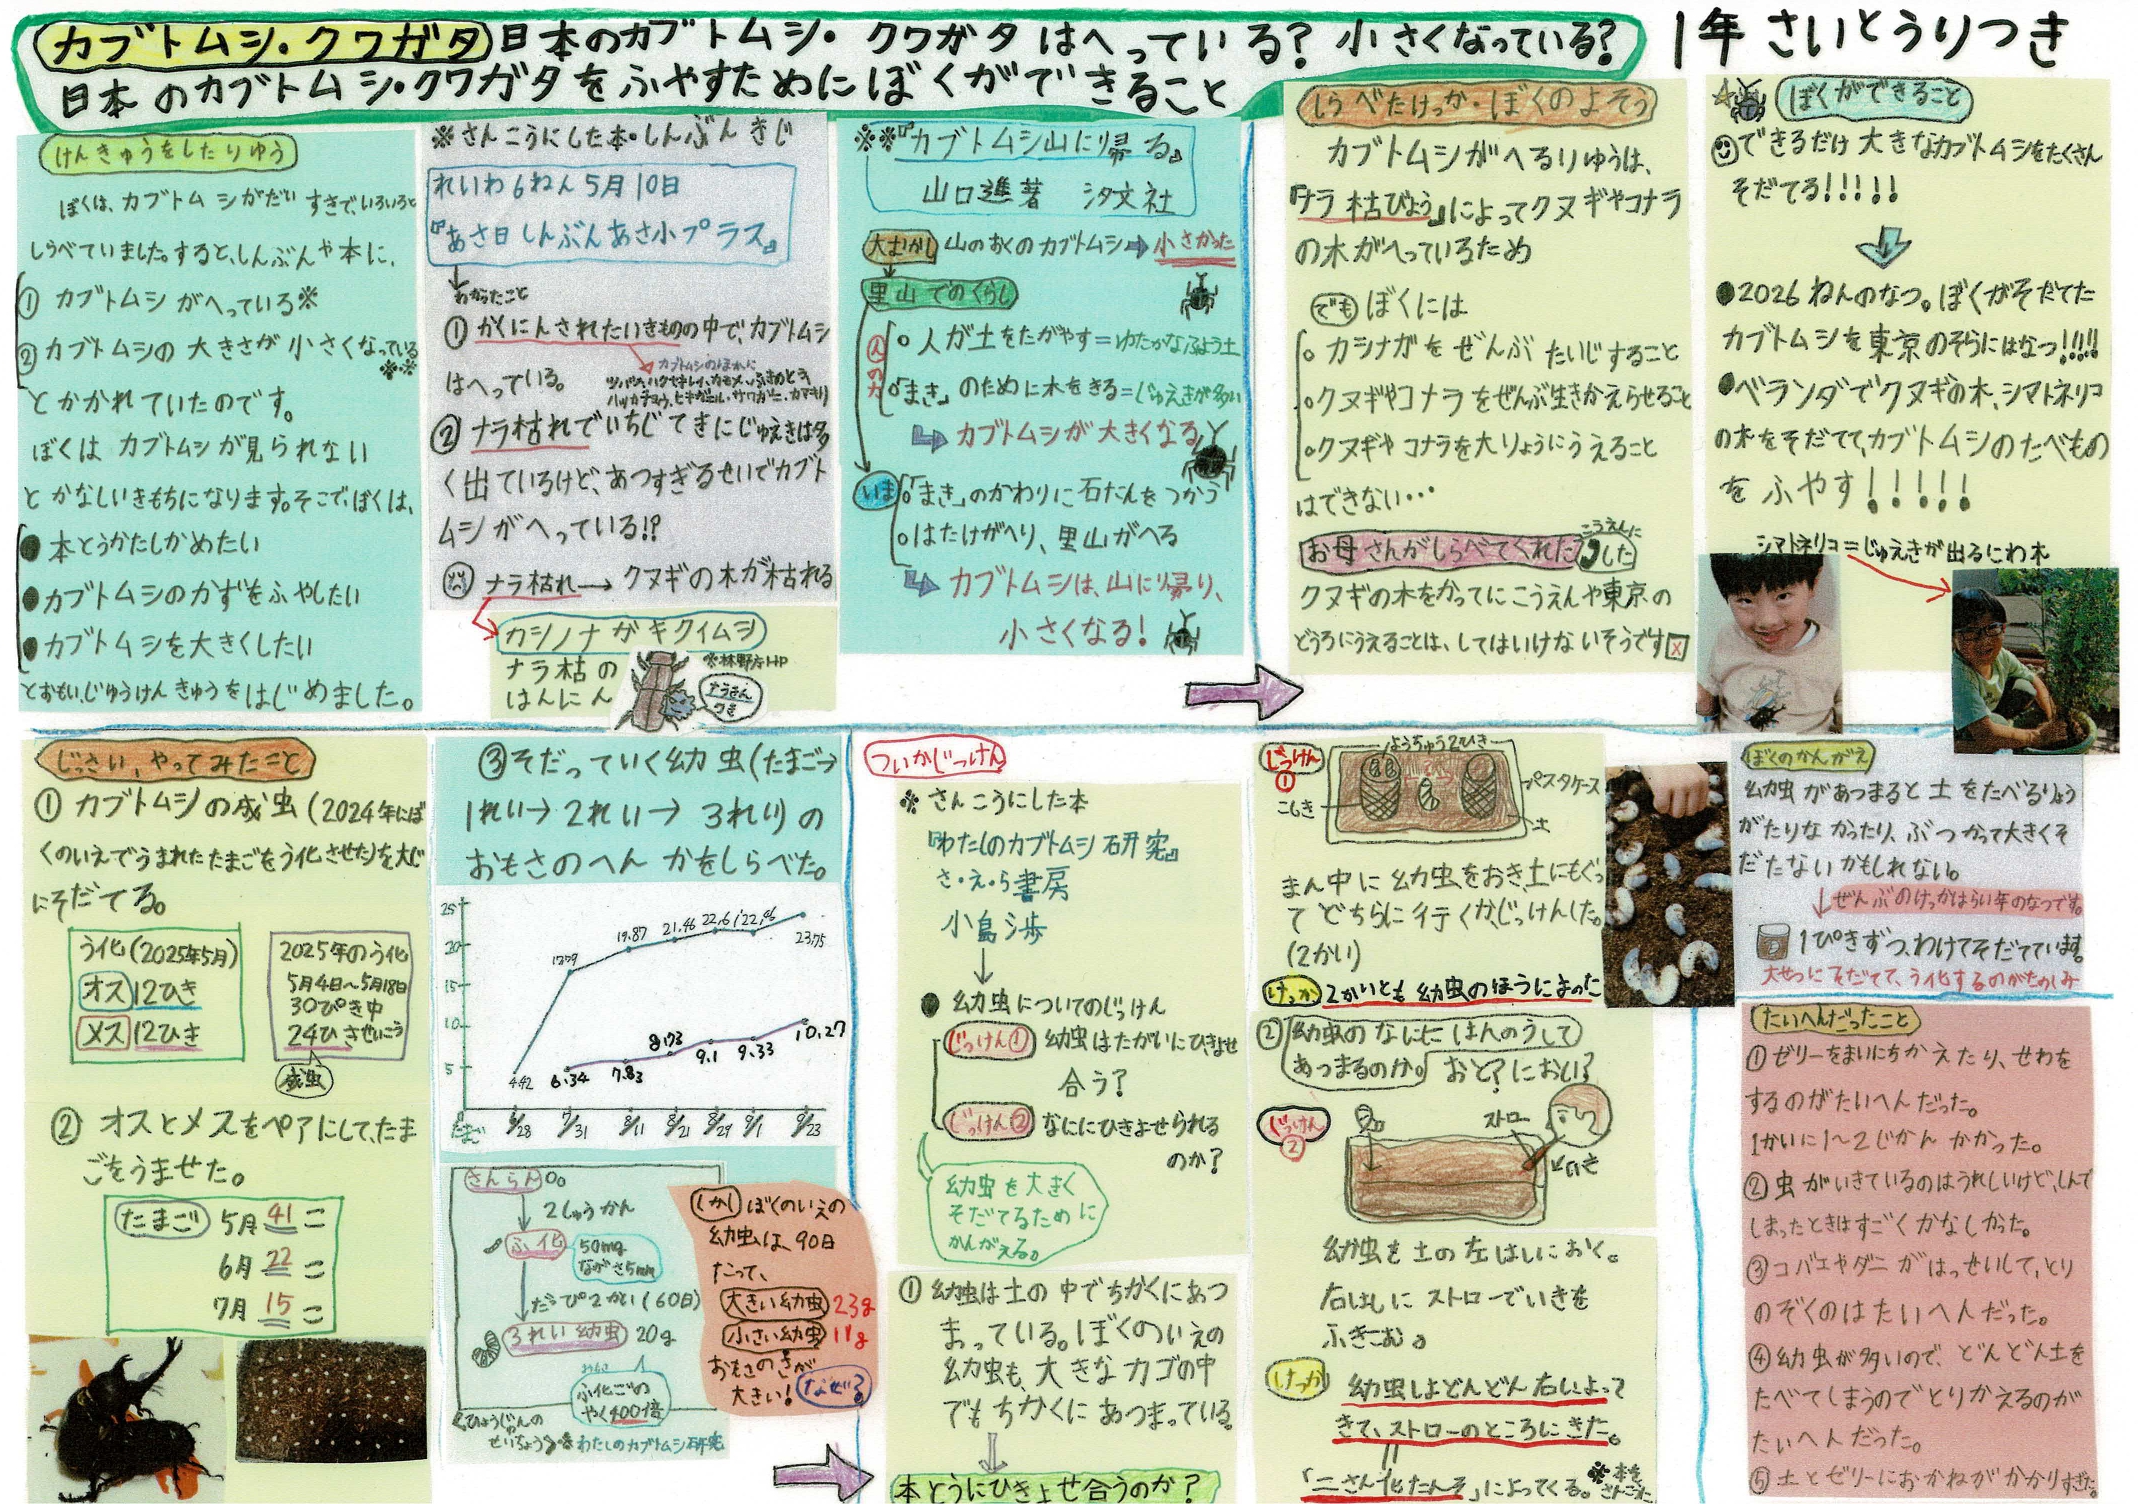 カブトムシ・クワガタ 日本のカブトムシ・クワガタはへっている?小さくなっている?
日本のカブトムシ・クワガタをふやすためにぼくができること
1年 さいとうりつき
けんきゅうをしたりゆう
ぼくは、カブトムシがだいすきで、いろいろと
しらべていました。すると、しんぶんや本に、
① カブトムシがへっている※
② カブトムシの大きさが小さくなっている※※
とかかれていたのです。
ぼくはカブトムシが見られない
とかなしいきもちになります。そこで、ぼくは、
●本とうかたしかめたい
●カブトムシのかずをふやしたい
●カブトムシを大きくしたい
とおもい、じゆうけんきゅうをはじめました。
※さんこうにした本・しんぶんきじ
れいわ6ねん5月10日
『あさ日しんぶんあさ小プラス』
わかったこと
① かくにんされたいきものの中で、カブトムシ
はへっている。
カブトムシのほかに
ツバメ、ハクセキレイ、カモメ、ふきのとう
② ナラ枯れでいちじてきにじゅえきは多
く出ているけど、あつすぎるせいでカブト
ムシがへっている!?
ナラ枯れ→クヌギの木が枯れる
カシノナガキクイムシ
ナラ枯の
はんにん
※林野庁HP
※※『カブトムシ山に帰る』
山口進著 汐文社
大むかし 山のおくのカブトムシ→小さかった
里山でのくらし
人の力
○人が土をたがやす=ゆたかなふよう土
○「まき」のために木をきる=じゅえきが多い
カブトムシが大きくなる
いま ○「まき」のかわりに石だんをつかう
○はたけがへり、里山がへる
カブトムシは、山に帰り、
小さくなる!
しらべたけっか・ぼくのよそう
カブトムシがへるりゆうは、
『ナラ枯びょう』によってクヌギやコナラ
の木がへっているため
でも ぼくには
○カシナガをぜんぶたいじすること
○クヌギやコナラをぜんぶ生きかえらせること
○クヌギやコナラを大りょうにうえること
はできない…
お母さんがしらべてくれた
こうえんに
した
クヌギの木をかってにこうえんや東京の
どうろにうえることは、してはいけないそうです
ぼくができること
できるだけ大きなカブトムシをたくさん
そだてる!!!!!
●2026ねんのなつ。ぼくがそだてた
カブトムシを東京のそらにはなつ!!!!
●ベランダでクヌギの木、シマトネリコ
の木をそだてて、カブトムシのたべもの
をふやす!!!!!
シマトネリコ=じゅえきが出るにわ木
じっさい、やってみたこと
① カブトムシの成虫(2024年にぼ
くのいえでうまれたたまごをう化させた)を大じ
にそだてる。
う化(2025年5月)
オス12ひき
メス12ひき
2025年のう化
5月4日~5月18日
30ぴき中
24ひきせいこう
成虫
② オスとメスをペアにして、たま
ごをうませた。
たまご 5月 41こ
6月 22こ
7月 15こ
③そだっていく幼虫(たまご→
1れい→2れい→3れい)の
おもさのへんかをしらべた。
25
20
15
10
5
0
19.87 21.46 22.61 22.96
23.75
4.42 6.34 7.83 8.73 9.1 9.33 10.27
たまご 7/31 8/11 8/21 8/29 9/1 9/23
さんらん
2しゅうかん
ふ化 50mg
ながさ5mm
だっぴ2かい(60日)
3れい幼虫 20g
ふ化ごの
やく400倍
わたしのカブトムシ研究
しかし ぼくのいえの
幼虫は、90日
たって、
大きい幼虫 23g
小さい幼虫 11g
おもさのさが
大きい! なぜ?
ついかじっけん
※さんこうにした本
『わたしのカブトムシ研究』
さ・え・ら書房
小島渉
●幼虫についてのじっけん
じっけん① 幼虫はたがいにひきよせ
合う?
じっけん② なににひきよせられる
のか?
幼虫を大きく
そだてるために
かんがえる。
① 幼虫は土の中でちかくにあつ
まっている。ぼくのいえの
幼虫も、大きなカゴの中
でもちかくにあつまっている。
本とうにひきよせ合うのか?
じっけん①
ようちゅう2ひき
パスタケース
土
まん中に幼虫をおき土にもぐっ
てどちらに行くか、じっけんした。
(2かい)
けっか 2かいとも幼虫のほうにまった
② 幼虫のなににはんのうして
あつまるのか。おと?におい?
じっけん②
ストロー
いき
幼虫を土の左はしにおく。
右はしにストローでいきを
ふきこむ。
けっか 幼虫はどんどん右によって
きて、ストローのところにきた。
「二さん化たんそ」によってくる。
ぼくのかんがえ
幼虫があつまると土をたべるりょう
がたりなかったり、ぶつかって大きくそ
だたないかもしれない。
ぜんぶのけっかはらい年のなつです。
1ぴきずつ、わけてそだてています。
大せつにそだてて、う化するのがたのしみ
たいへんだったこと
① ゼリーをまいにちかえたり、せわを
するのがたいへんだった。
1かいに1~2じかんかかった。
② 虫がいきているのはうれしいけど、しんで
しまったときはすごくかなしかった。
③ コバエやダニがはっせいして、とり
のぞくのはたいへんだった。
④ 幼虫が多いので、どんどん土を
たべてしまうのでとりかえるのが
たいへんだった。
⑤ 土とゼリーにおかねがかかりすぎた。